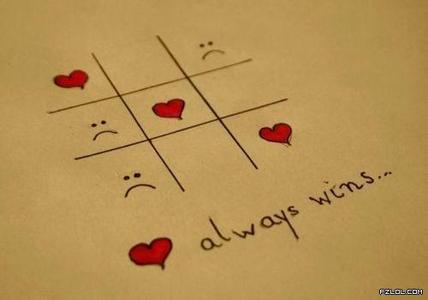 always wins...
PZLOL.COM